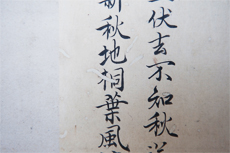 伏去不知秋
新秋地洞葉風